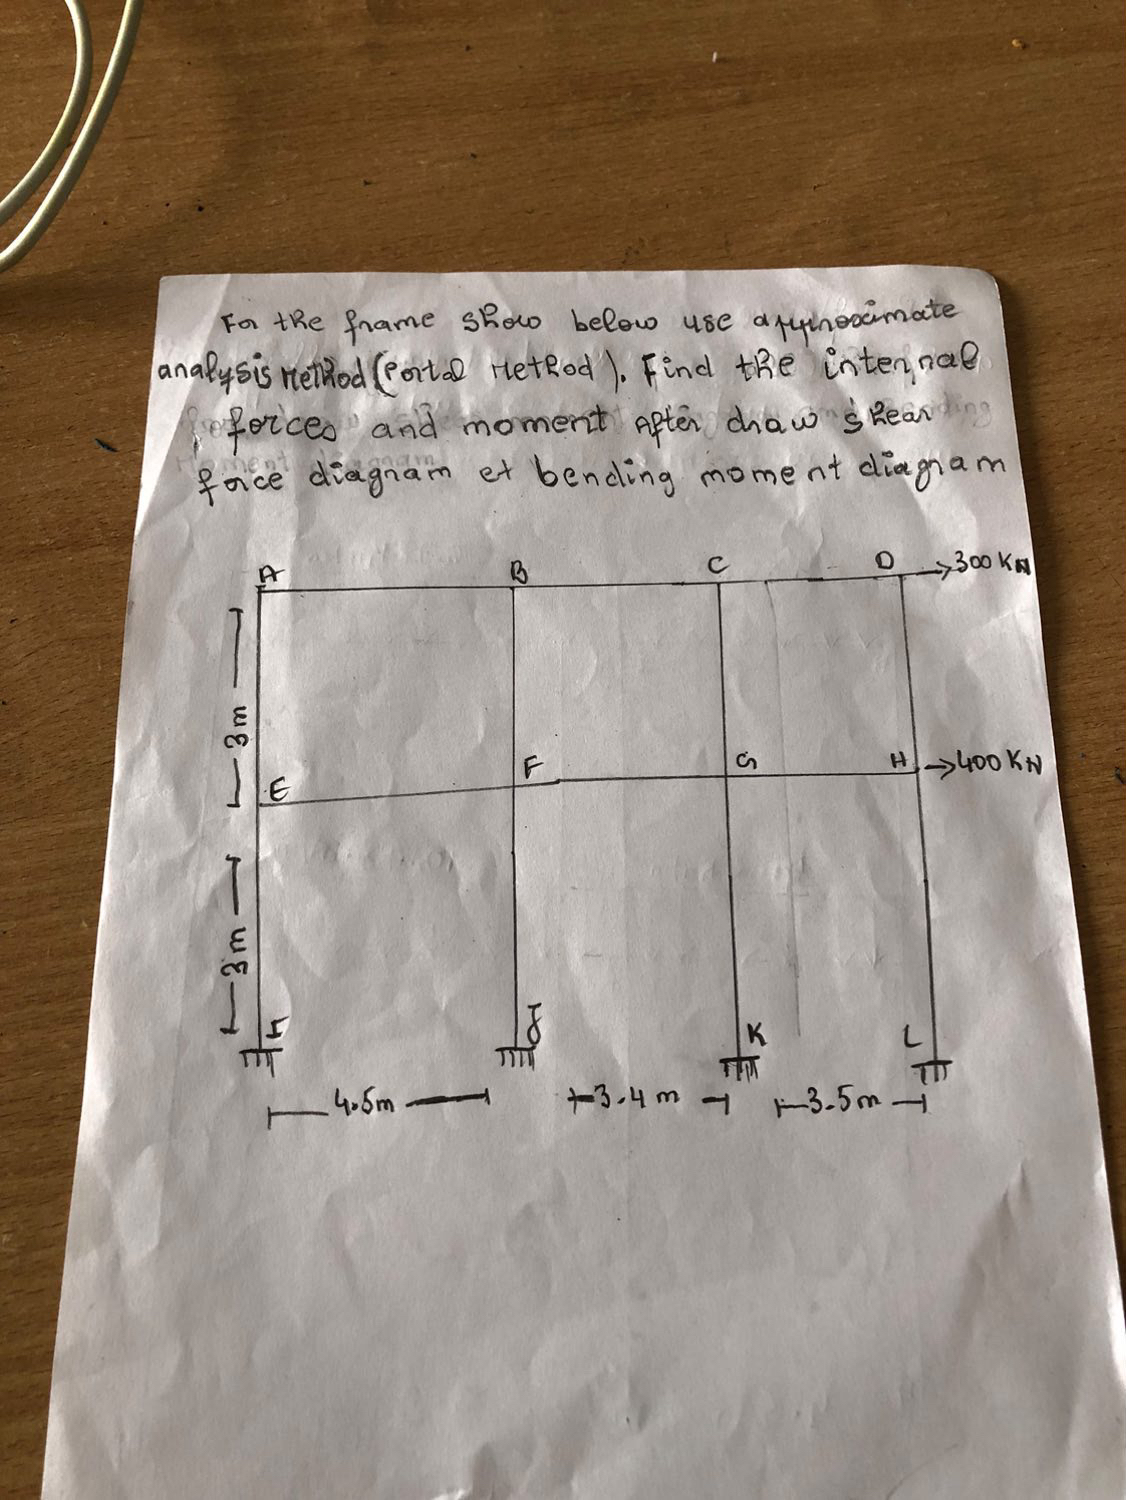 For the frame show below use approximate
analysis Method (Portal Method). Find the internal
forces and moment After draw shear
force diagram et bending moment diagram
A B C D →300 KN
3m
E F G H →400 KN
3m
I J K L
4.5m 3.4 m 3.5m